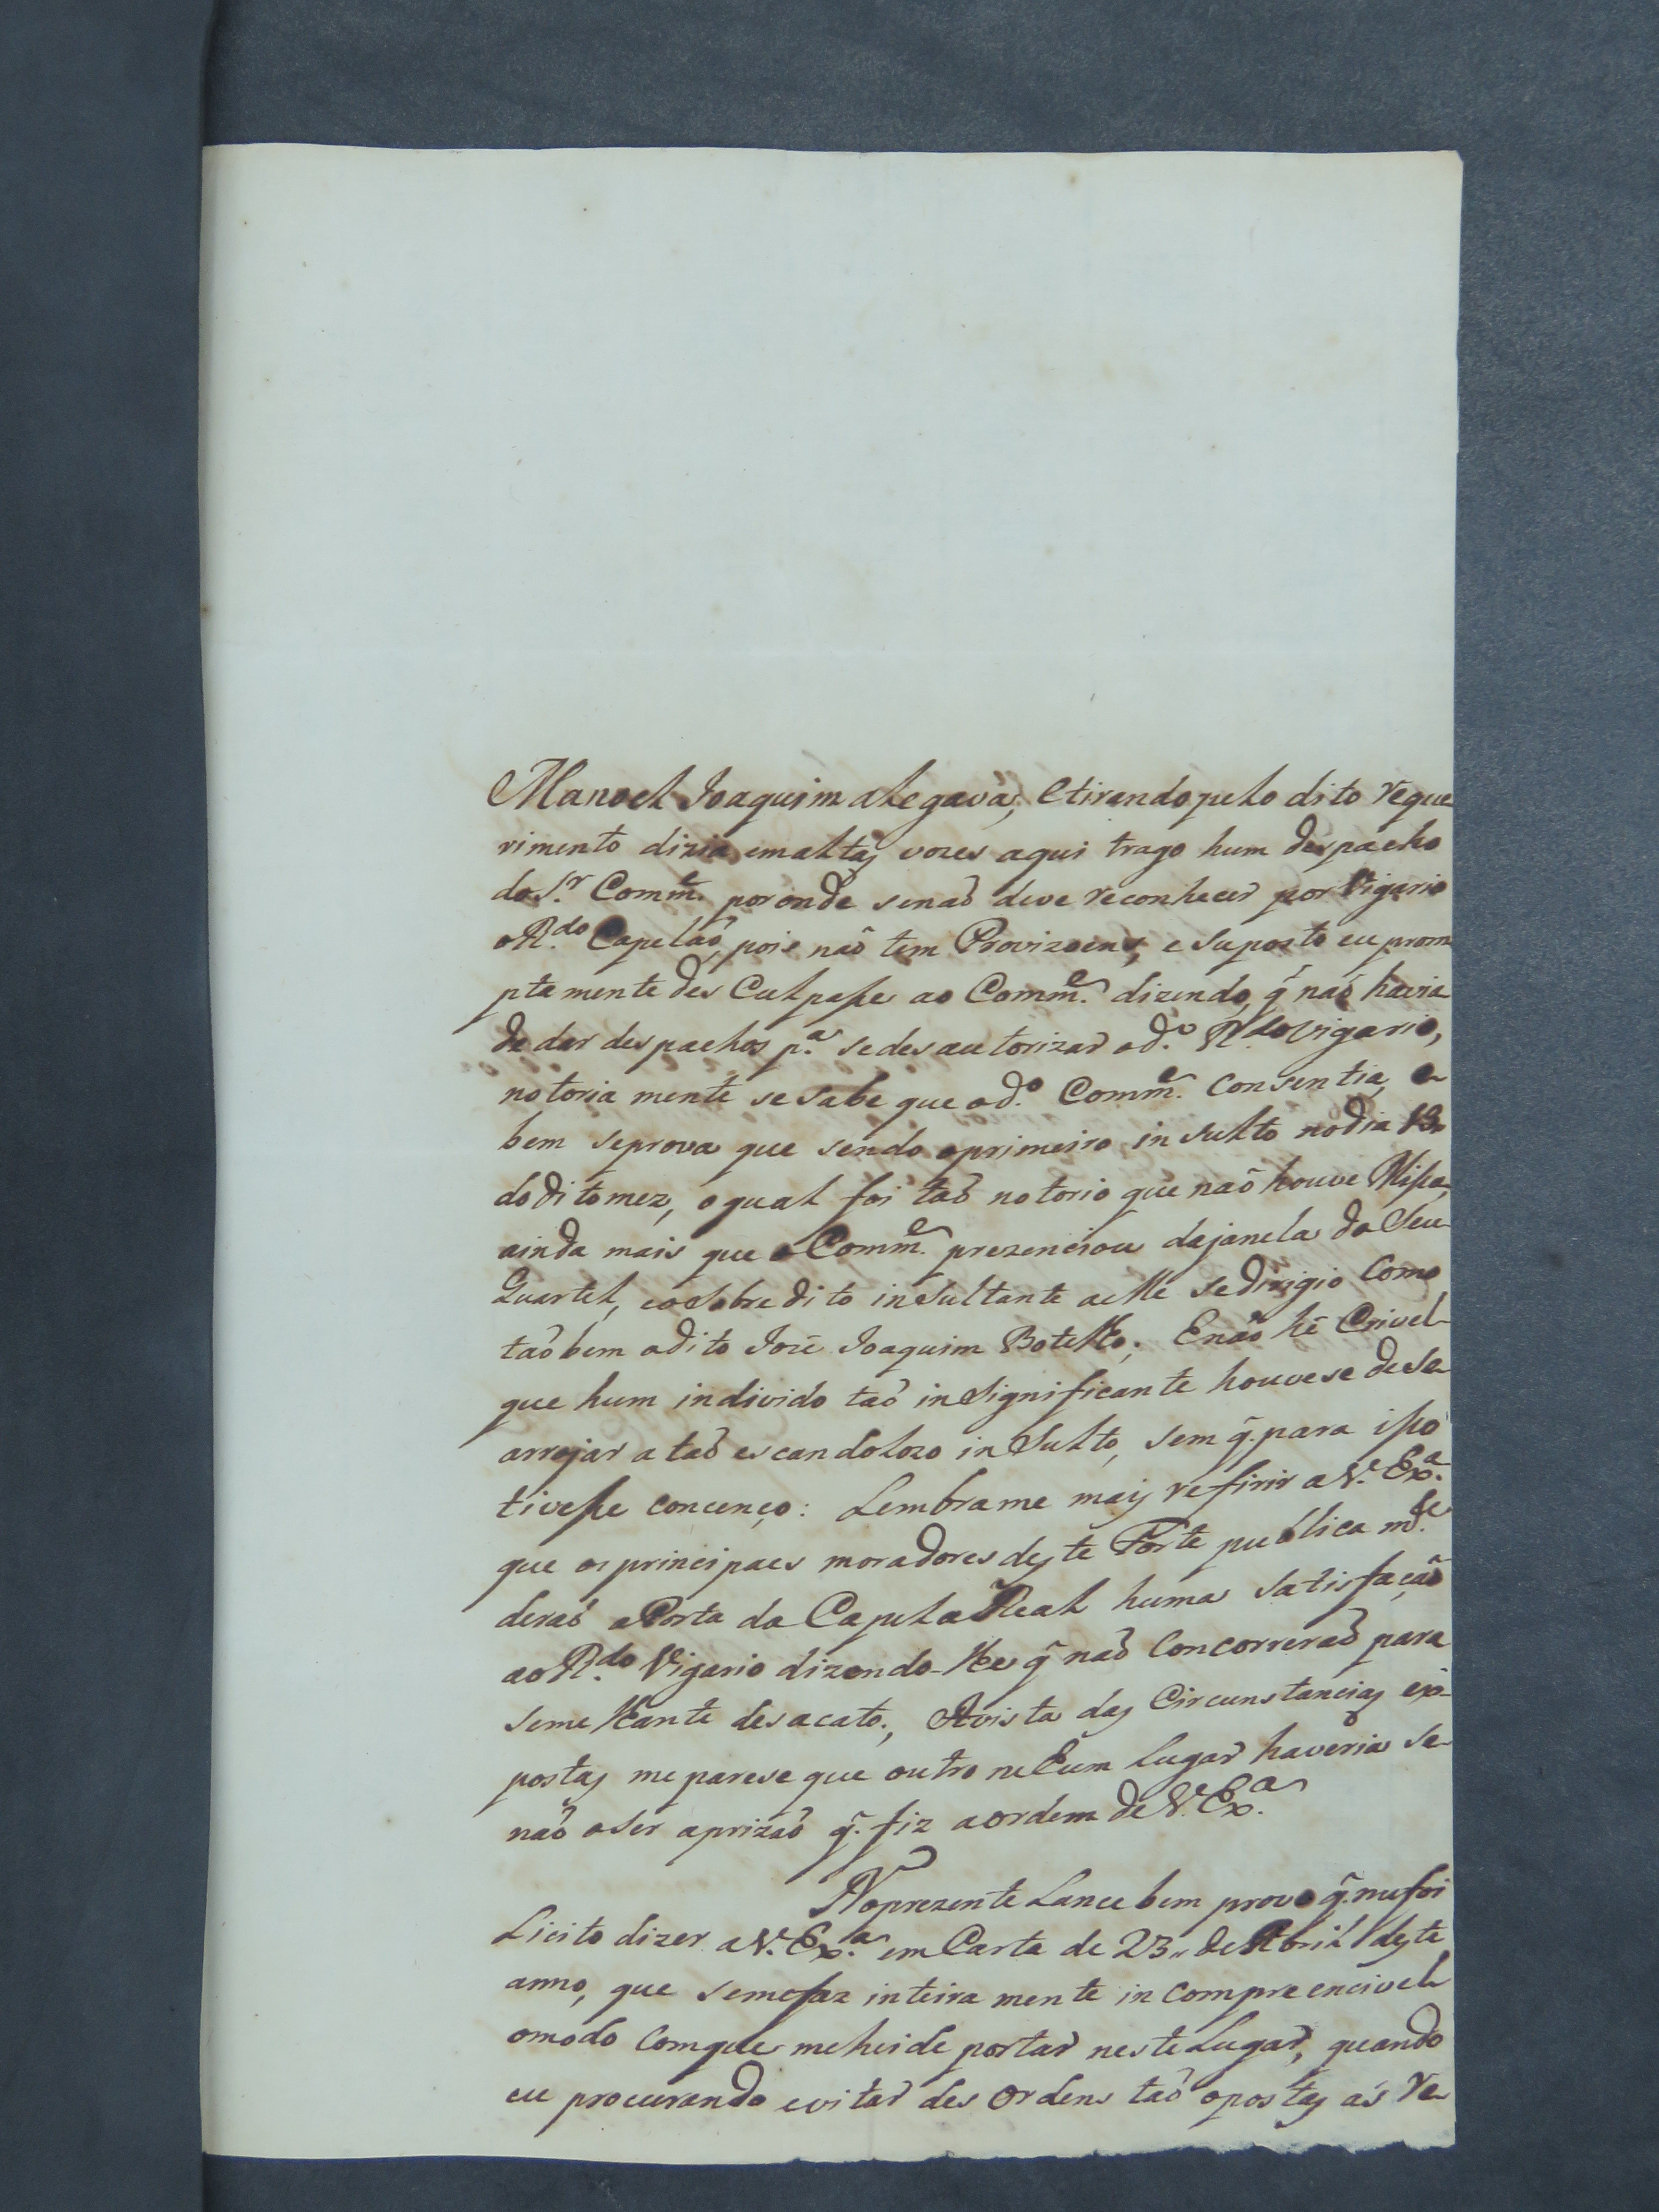 Manoel Joaquim alegava, Etirando pelo dito reque
rimento dizia emaltas vozes aqui trago hum despacho
do S.r Comm.e poronde senaõ deve reconhecer por Vigario
o R.do Capelaõ, pois naõ tem Provizoens, e suposto eu prom
ptamente des Culpaſse ao Comm.e dizendo, q̃ naõ havia
de dar despachos p.a sedesautorizar od.o R.do Vigario,
notoria mente se sabe que od.o Comm.e Consentia, e
bem seprova que sendo oprimeiro insulto nodia 13
do ditomez, oqual foi taõ notorio que naõ houve Miſsa,
ainda mais que o Comm.e prezenciou dajanela do Seu
Quartel, eosobredito insultante aelle sedirigio Como
taõbem odito Joze Joaquim Botelho; Enaõ hé Crivel
que hum individo taõ insignificante houvese dese
arrojar a taõ escandolozo insulto, sem q̃. para iſso
tiveſse concenço: Lembrame mais refirir a V. Ex.a
que os principaes moradores deste Forte publica m.te
deraõ aPorta da Capela Real huma satisfaçaõ
ao R.do Vigario dizendo-lhe q̃ naõ Concorreraõ para
semelhante desacato; Avista das Circunstancias ex-
postas me parese que outro nehum Lugar haveria se
naõ oser aprizaõ q̃. fiz aordem de V. Ex.a
Noprezente Lance bem provo q̃. mefoi
Licito dizer a V. Ex.a em Carta de 23,, de Abril deste
anno, que semefaz inteira mente incompreencivel
omodo comque meheide portar neste Lugar, quando
eu procurando evitar des Ordens taõ opostas ás Re